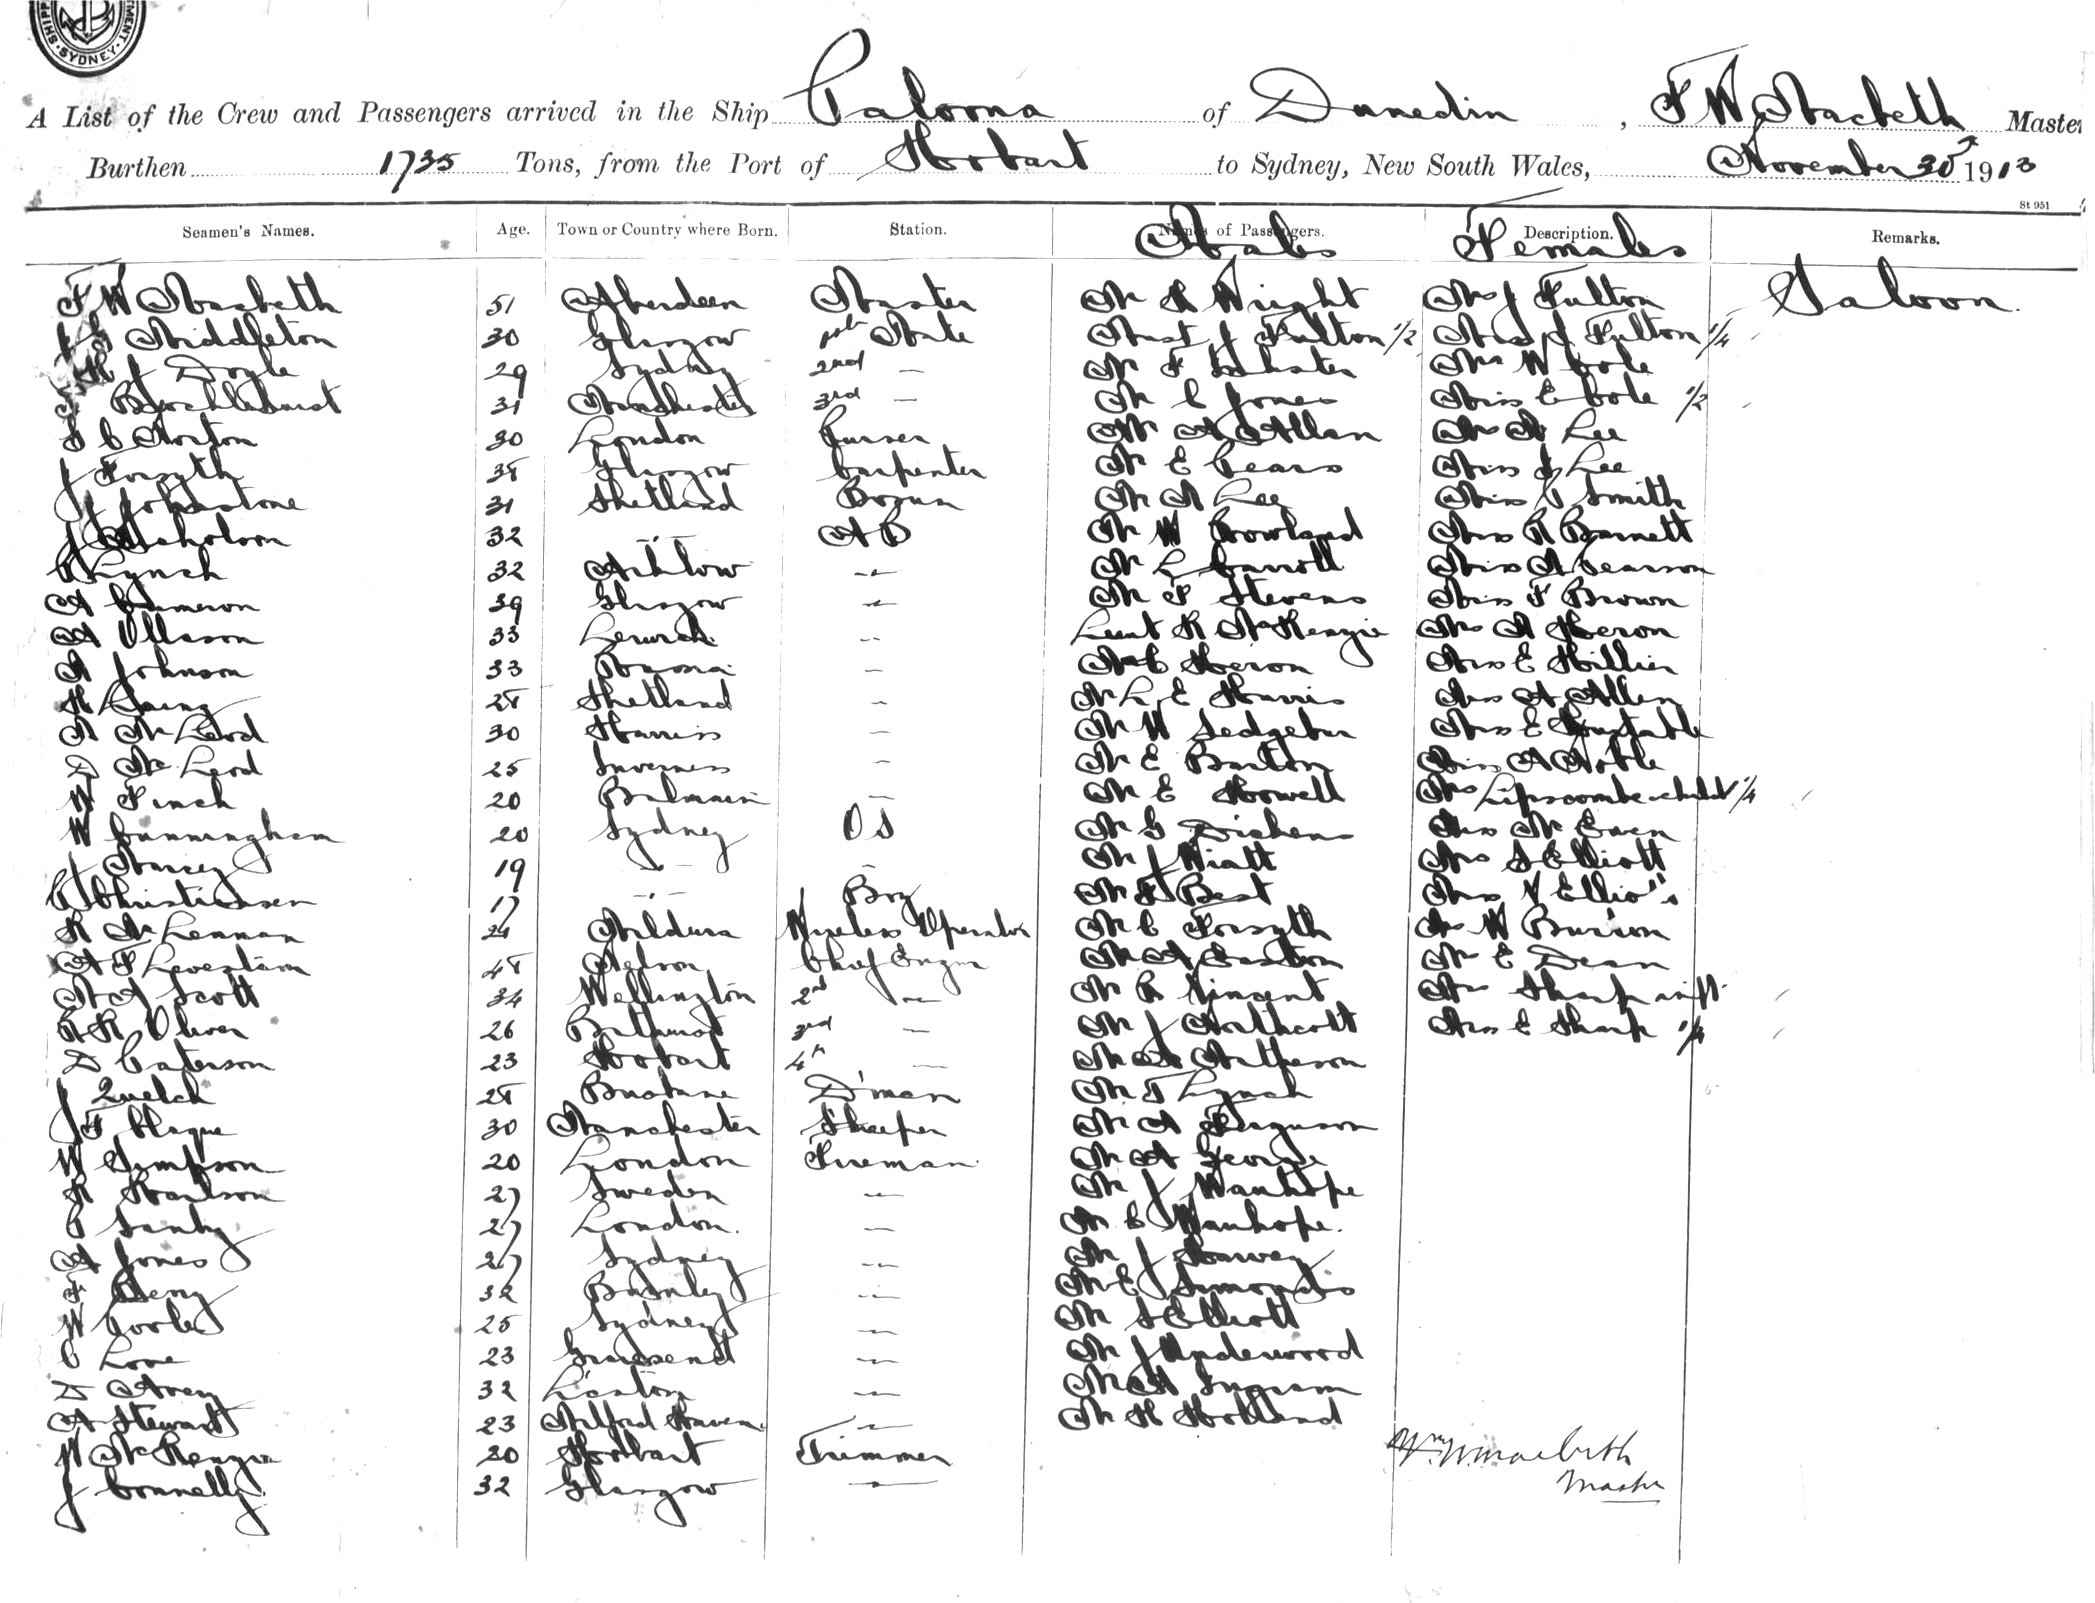 SHIPPING DEPARTMENT SYDNEY
A List of the Crew and Passengers arrived in the Ship Paloona of Dunedin, F W Macbeth Master
Burthen 1735 Tons, from the Port of Hobart to Sydney, New South Wales, November 30 1913
St 951
Seamen's Names. Age. Town or Country where Born. Station. Names of Passengers. Males Description. Females Remarks.
F W Macbeth 51 Aberdeen Master Mr R Wright Mrs J Fulton Saloon.
Middleton 30 Glasgow 1st Mate Mast J Fulton 1/2 Miss J Fulton 1/4
Doyle 29 Sydney 2nd — Mr F Mrs W Cole
Brocklehurst 31 Manchester 3rd — Mr C Jones Miss E Cole 1/2
S C Norton 30 London Purser Mr A Allan Mrs A Lee
J Forsyth 38 Glasgow Carpenter Mr E Pears Miss J Lee
J Johnstone 31 Shetland Bosun Mr A Lee Miss Smith
J Nicholson 32 -"- AB Mr W Rowland Miss R Barnett
P Lynch 32 Arklow -"- Mr L Carroll Miss A Pearson
A Cameron 39 Glasgow -"- Mr F Stevens Miss F Brown
A Ollason 33 Lerwick -"- Lieut R McKenzie Mrs A Heron
A Johnson 33 — Mr C Heron Miss E Hillier
R Laing 28 Shetland — Mr L E Harris Miss A Allen
A McLeod 30 Harris — Mr W Miss E Constable
D McLeod 25 Inverness — Mr E Burton Miss A Noble
W Finch 20 Balmain — Mr E Howell Mrs Lipscombe & child 1/4
W Cunningham 20 Sydney OS Mr G Dickens Miss McEwen
J Stacey 19 -"- — Mr J Wiatt Mrs S Elliott
C Christiansen 17 -"- Boy Mr F Best Miss V Elliott
R McLennan 24 Mildura Wireless Operator Mr C Forsyth Mrs W Burton
A F Levestam 48 Nelson Chief Engnr Mr A Easton Mrs E Dean
A Scott 34 Wellington 2nd -"- Mr R Vincent Mrs Sharp inft
R R Oliver 26 Bathurst 3rd — Mr J Northcott Miss E Sharp 1/4
D Paterson 23 Hobart 4th — Mr Matheson
J Quelch 28 Brisbane D'man Mr T Lynch
J F Hague 30 Manchester Storekeeper Mr A Ferguson
W Simpson 20 London Fireman Mr A George
R Karlson 27 Sweden -"- Mr J Wauhope
27 London. — Mr C Wauhope.
A Jones 27 Sydney -"- Mr J Harvey
F Berry 32 Burnley -"- Mr E Simonds
W Cooley 25 Sydney -"- Mr S Elliott
C Love 23 Gravesend -"- Mr J Underwood
D Avery 32 -"- Mr A Ingram
A Stewart 23 Milford Haven -"- Mr H Holland
W McKenzie 20 Hobart Trimmer
J Connelly 32 Glasgow -"-
Macbeth
Master